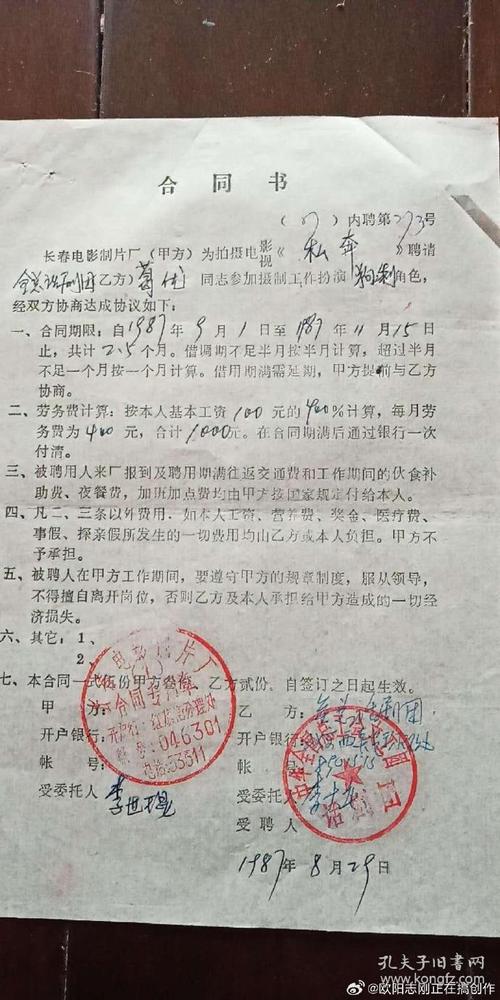 合同书
(87)内聘第273号
长春电影制片厂(甲方)为拍摄电影视《私奔》聘请
全总话剧团乙方)葛优同志参加摄制工作扮演狗剩角色,
经双方协商达成协议如下:
一、合同期限:自1987年9月1日至1987年11月15日
止,共计2.5个月。借调期不足半月按半月计算,超过半月
不足一个月按一个月计算。借用期满需延期,甲方提前与乙方
协商。
二、劳务费计算:按本人基本工资100元的400%计算,每月劳
务费为400元,合计1000元。在合同期满后通过银行一次
付清。
三、被聘用人来厂报到及聘用期满往返交通费和工作期间的伙食补
助费、夜餐费,加班加点费均由甲方按国家规定付给本人。
四、凡二、三条以外费用.如本人工资、营养费、奖金、医疗费、
事假、探亲假所发生的一切费用均由乙方或本人负担。甲方不
予承担。
五、被聘人在甲方工作期间,要遵守甲方的规章制度,服从领导,
不得擅自离开岗位,否则乙方及本人承担给甲方造成的一切经
济损失。
六、其它:1、
2、
七、本合同一式伍份甲方叁份,乙方贰份。自签订之日起生效。
甲方: 乙方:全总话剧团
开户银行: 开户银行:
帐号: 帐号:
受委托人 受委托人
受聘人
1987年8月29日
电影制片厂
合同专用章
开户行:红旗街办理处
帐号:046301
电话:53511
话剧团
孔夫子旧书网
www.kongfz.com
@欧阳志刚正在搞创作